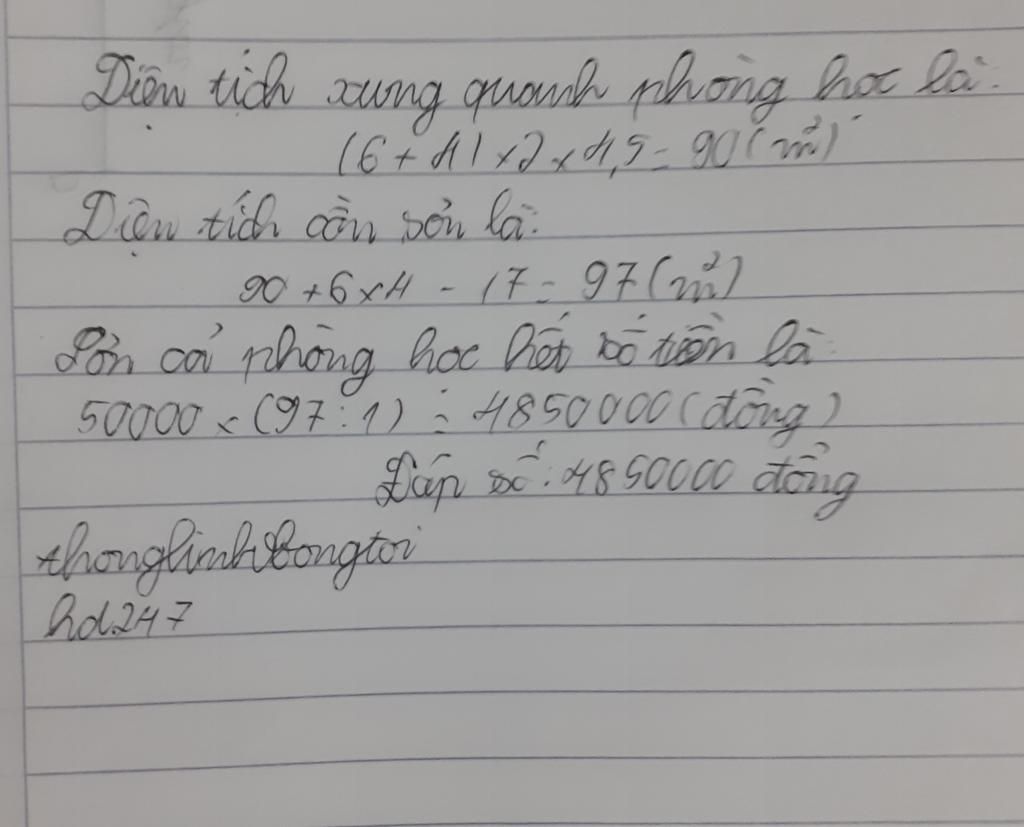 Diện tích xung quanh phòng học là:
(6 + 4) x 2 x 4,5 = 90 (m²)
Diện tích cần sơn là:
90 + 6 x 4 - 17 = 97 (m²)
Sơn cả phòng học hết số tiền là:
50000 x (97 : 1) = 4850000 (đồng)
Đáp số: 4850000 đồng
thonglinhbongtoi
hd247